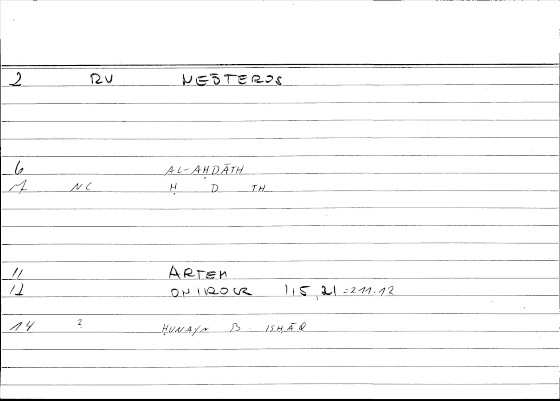 2 RU NEŌTEROS
6 AL-AḤDĀTH
7 NC Ḥ D TH
11 ARTEM
12 ONIROCR 115,21=211.12
14 ? ḤUNAYN B. ISḤĀQ